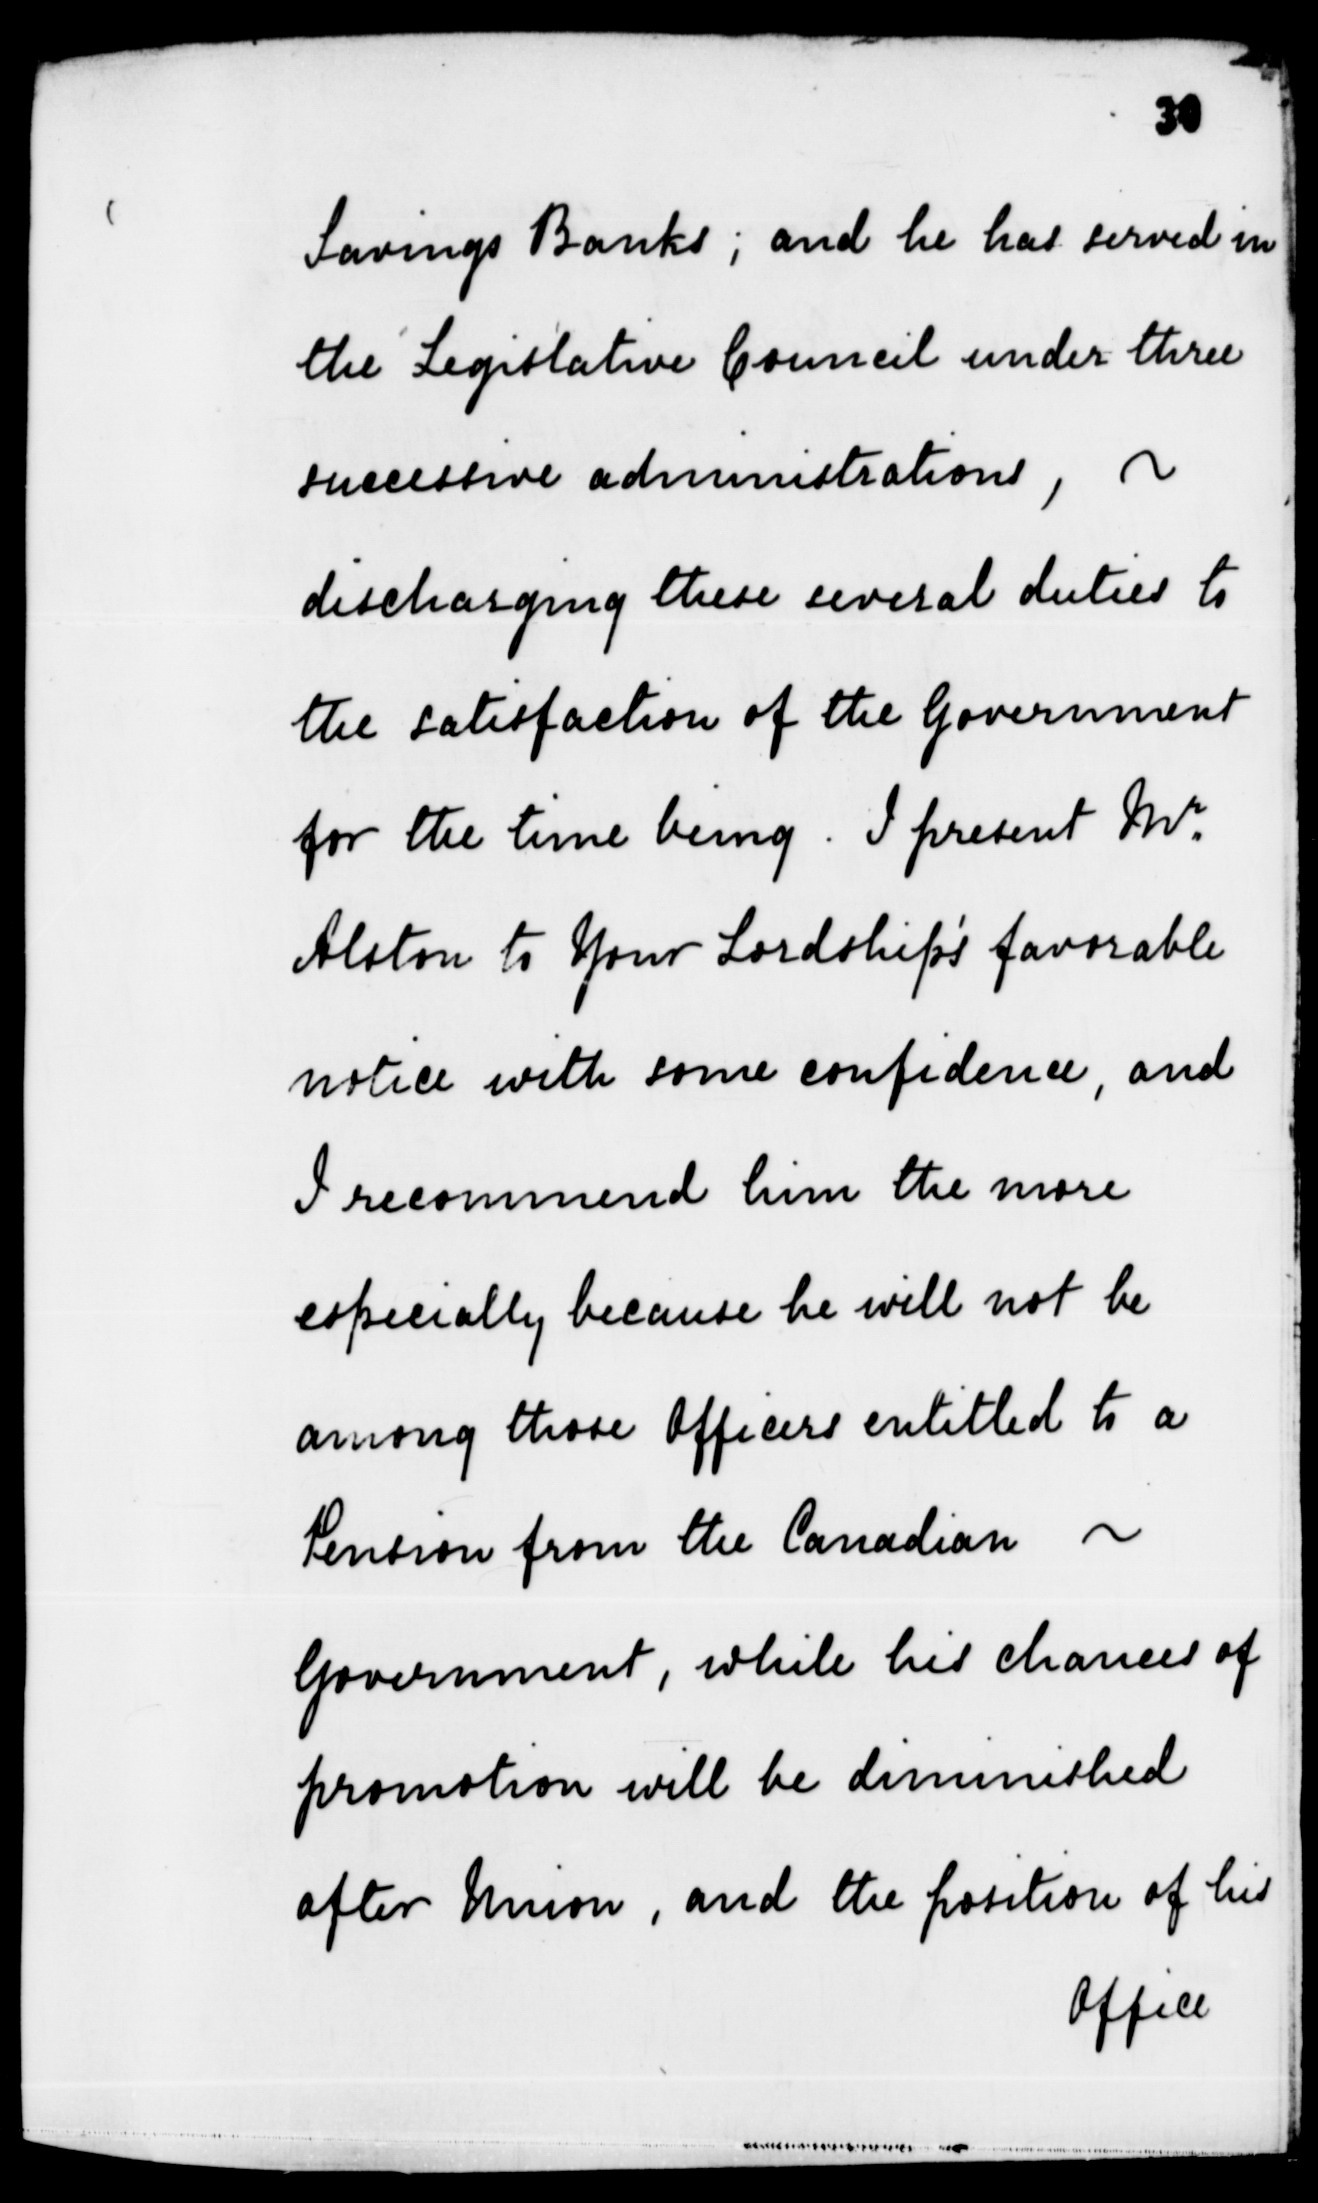 30
Savings Banks; and he has served in
the Legislative Council under three
successive administrations, ~
discharging these several duties to
the satisfaction of the Government
for the time being. I present Mr.
Alston to Your Lordship's favorable
notice with some confidence, and
I recommend him the more
especially because he will not be
among those Officers entitled to a
Pension from the Canadian ~
Government, while his chances of
promotion will be diminished
after Union, and the position of his
Office